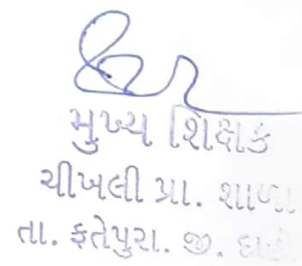 મુખ્ય શિક્ષક
ચીખલી પ્રા. શાળા
તા. ફતેપુરા. જી.